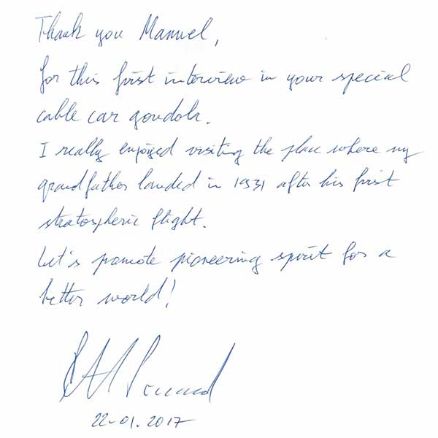 Thank you Manuel,
for this first interview in your special
cable car gondola.
I really enjoyed visiting the place where my
grandfather landed in 1931 after his first
stratospheric flight.
Let's promote pioneering spirit for a
better world!
22-01.2017